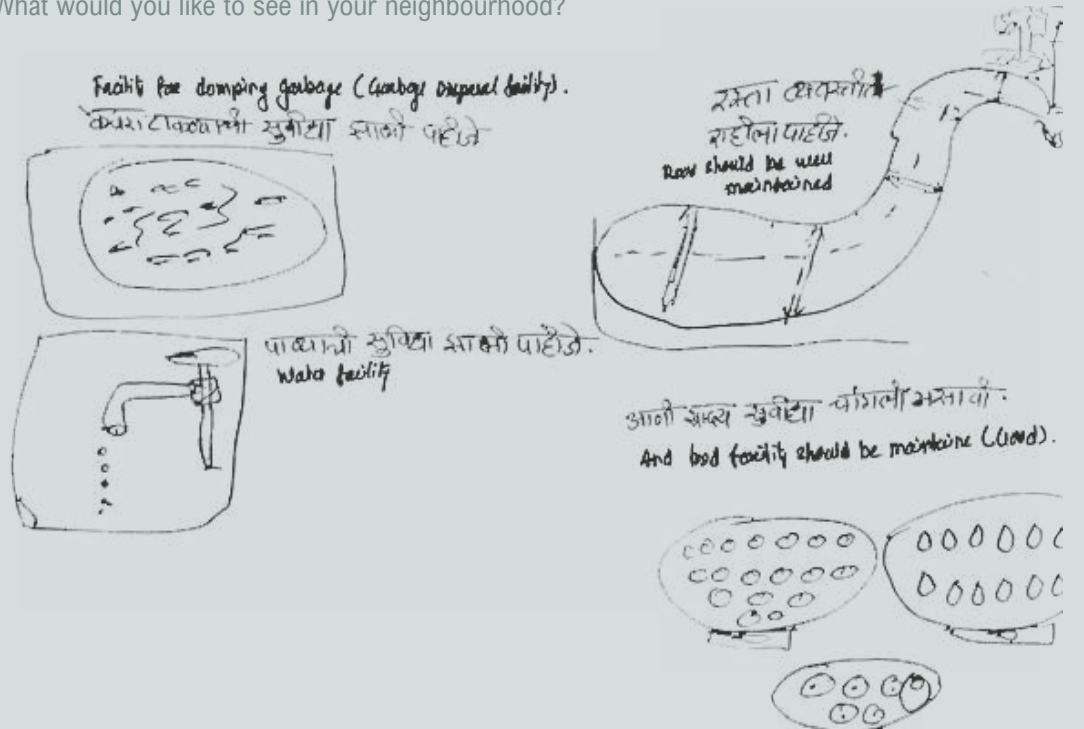 What would you like to see in your neighbourhood?
Facilit for domping garbage (Garbage Disposal facility).
कचरा टाकण्याची सुवीधा झाली पाहीजे
रस्ता व्यवस्तीत
राहीला पाहीजे.
Road should be well
maintained
पाण्याची सुविधा झाली पाहीजे.
Water facility
आनी खाद्य सुवीधा चांगली असावी.
And food facility should be maintaine (Good).